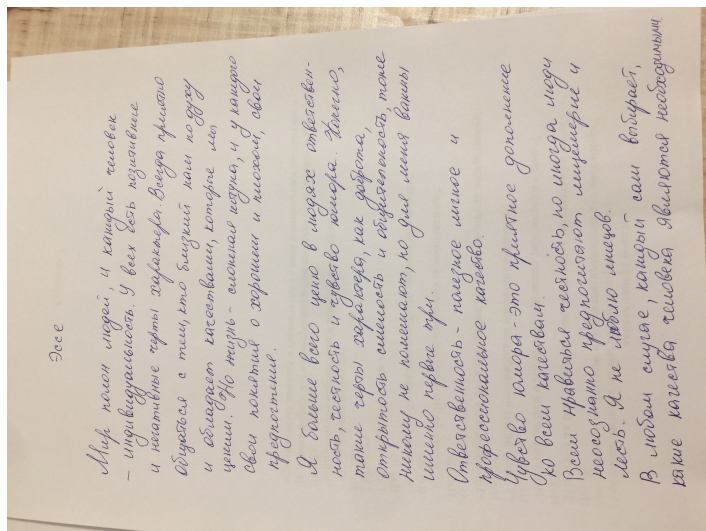 Эссе
Мир полон людей, и каждый человек
- индивидуальность. У всех есть позитивные
и негативные черты характера. Всегда приятно
общаться с тем, кто близкий нам по духу
и обладает качествами, которые мы
ценим. Но жизнь - сложная штука, и у каждого
свои понятия о хорошем и плохом, свои
предпочтения.
Я больше всего ценю в людях ответствен-
ность, честность и чувство юмора. Конечно,
такие черты характера, как доброта,
открытость смелость и общительность, тоже
никому не помешают, но для меня важны
именно первые три.
Ответственность - полезное личное и
профессиональное качество.
Чувство юмора - это приятное дополнение
ко всем качествам.
Всем нравиться честность, но иногда люди
неосознанно предпочитают лицемерие и
лесть. Я не люблю лжецов.
В любом случае, каждый сам выбирает,
какие качества человека являются необходимыми